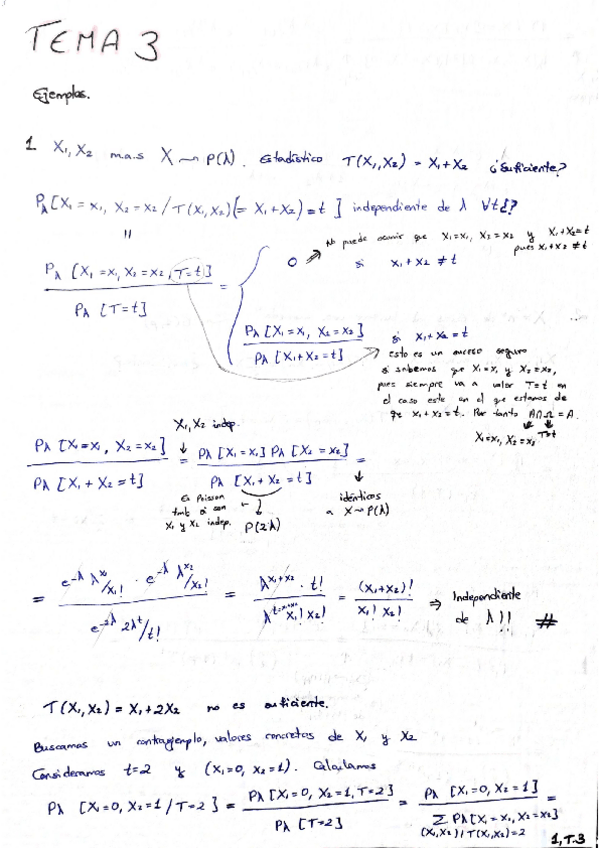 TEMA 3
Ejemplos.
1 X₁, X₂ m.a.s X ⟿ P(λ). Estadístico T(X₁, X₂) = X₁ + X₂ ¿Suficiente?
Pλ [X₁ = x₁, X₂ = x₂ / T(X₁, X₂) (= X₁ + X₂) = t] independiente de λ ∀t?
||
Pλ [X₁ = x₁, X₂ = x₂, T = t] / Pλ [T = t] =
0 si x₁ + x₂ ≠ t
No puede ocurrir que X₁ = x₁, X₂ = x₂ y X₁ + X₂ = t
pues x₁ + x₂ ≠ t
Pλ [X₁ = x₁, X₂ = x₂] / Pλ [X₁ + X₂ = t] si x₁ + x₂ = t
esto es un suceso seguro
si sabemos que X₁ = x₁ y X₂ = x₂,
pues siempre va a valer T = t en
el caso este en el que estamos de
que x₁ + x₂ = t. Por tanto A∩Ω = A.
X₁ = x₁, X₂ = x₂ T = t
X₁, X₂ indep.
Pλ [X₁ = x₁, X₂ = x₂] / Pλ [X₁ + X₂ = t] = Pλ [X₁ = x₁] Pλ [X₂ = x₂] / Pλ [X₁ + X₂ = t] =
Es Poisson
tmb si son
X₁ y X₂ indep.
P(2λ)
idénticos
a X ⟿ P(λ)
= e^-λ λ^x₁/x₁! · e^-λ λ^x₂/x₂! / e^-2λ 2λ^t/t! = λ^x₁+x₂ · t! / λ^t=x₁+x₂ x₁! x₂! = (x₁+x₂)! / x₁! x₂! ⇒ Independiente
de λ!! #
T(X₁, X₂) = X₁ + 2X₂ no es suficiente.
Buscamos un contraejemplo, valores concretos de X₁ y X₂
Consideramos t = 2 y (X₁ = 0, X₂ = 1). Calculamos
Pλ [X₁ = 0, X₂ = 1 / T = 2] = Pλ [X₁ = 0, X₂ = 1, T = 2] / Pλ [T = 2] = Pλ [X₁ = 0, X₂ = 1] / Σ Pλ [X₁ = x₁, X₂ = x₂] =
(X₁, X₂) / T(X₁, X₂) = 2
1, T.3